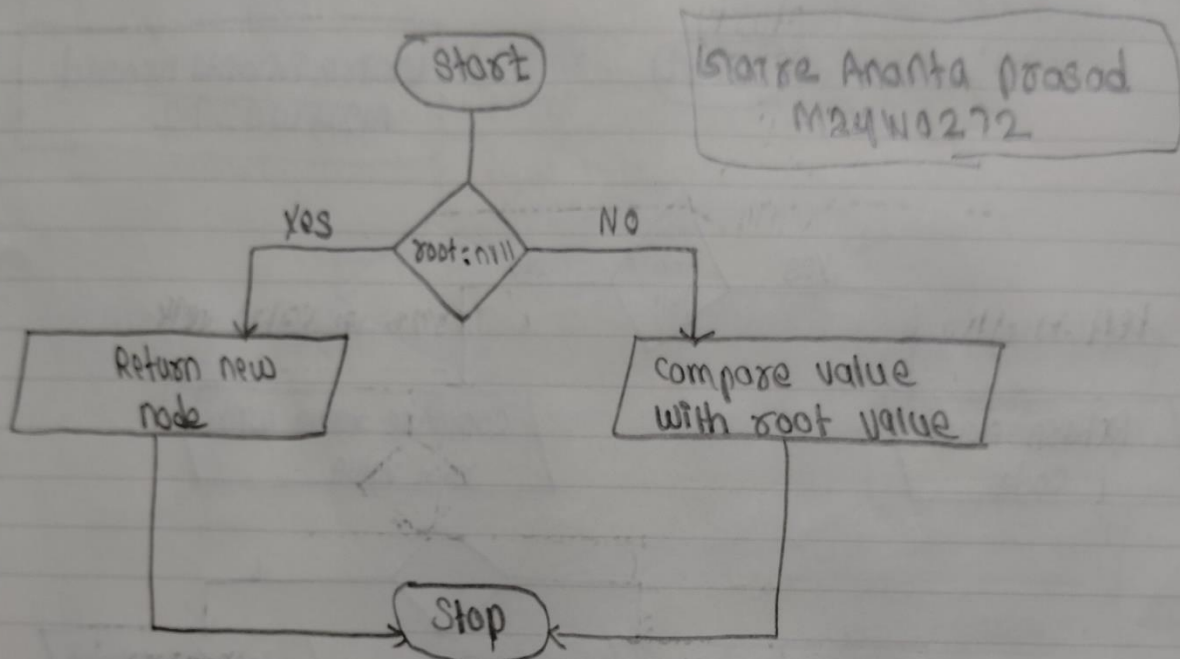 Start
Ananta Prasad
May W0272
Yes
NO
root:null
Return new
node
compare value
with root value
Stop